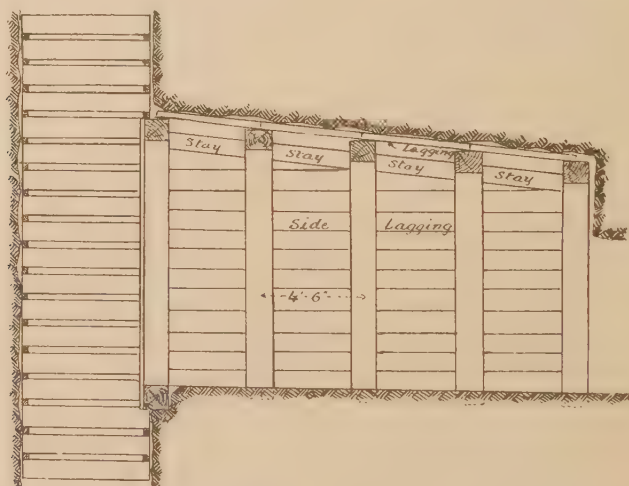 Stay
Stay
Lagging
Stay
Stay
Side Lagging
4'·6"